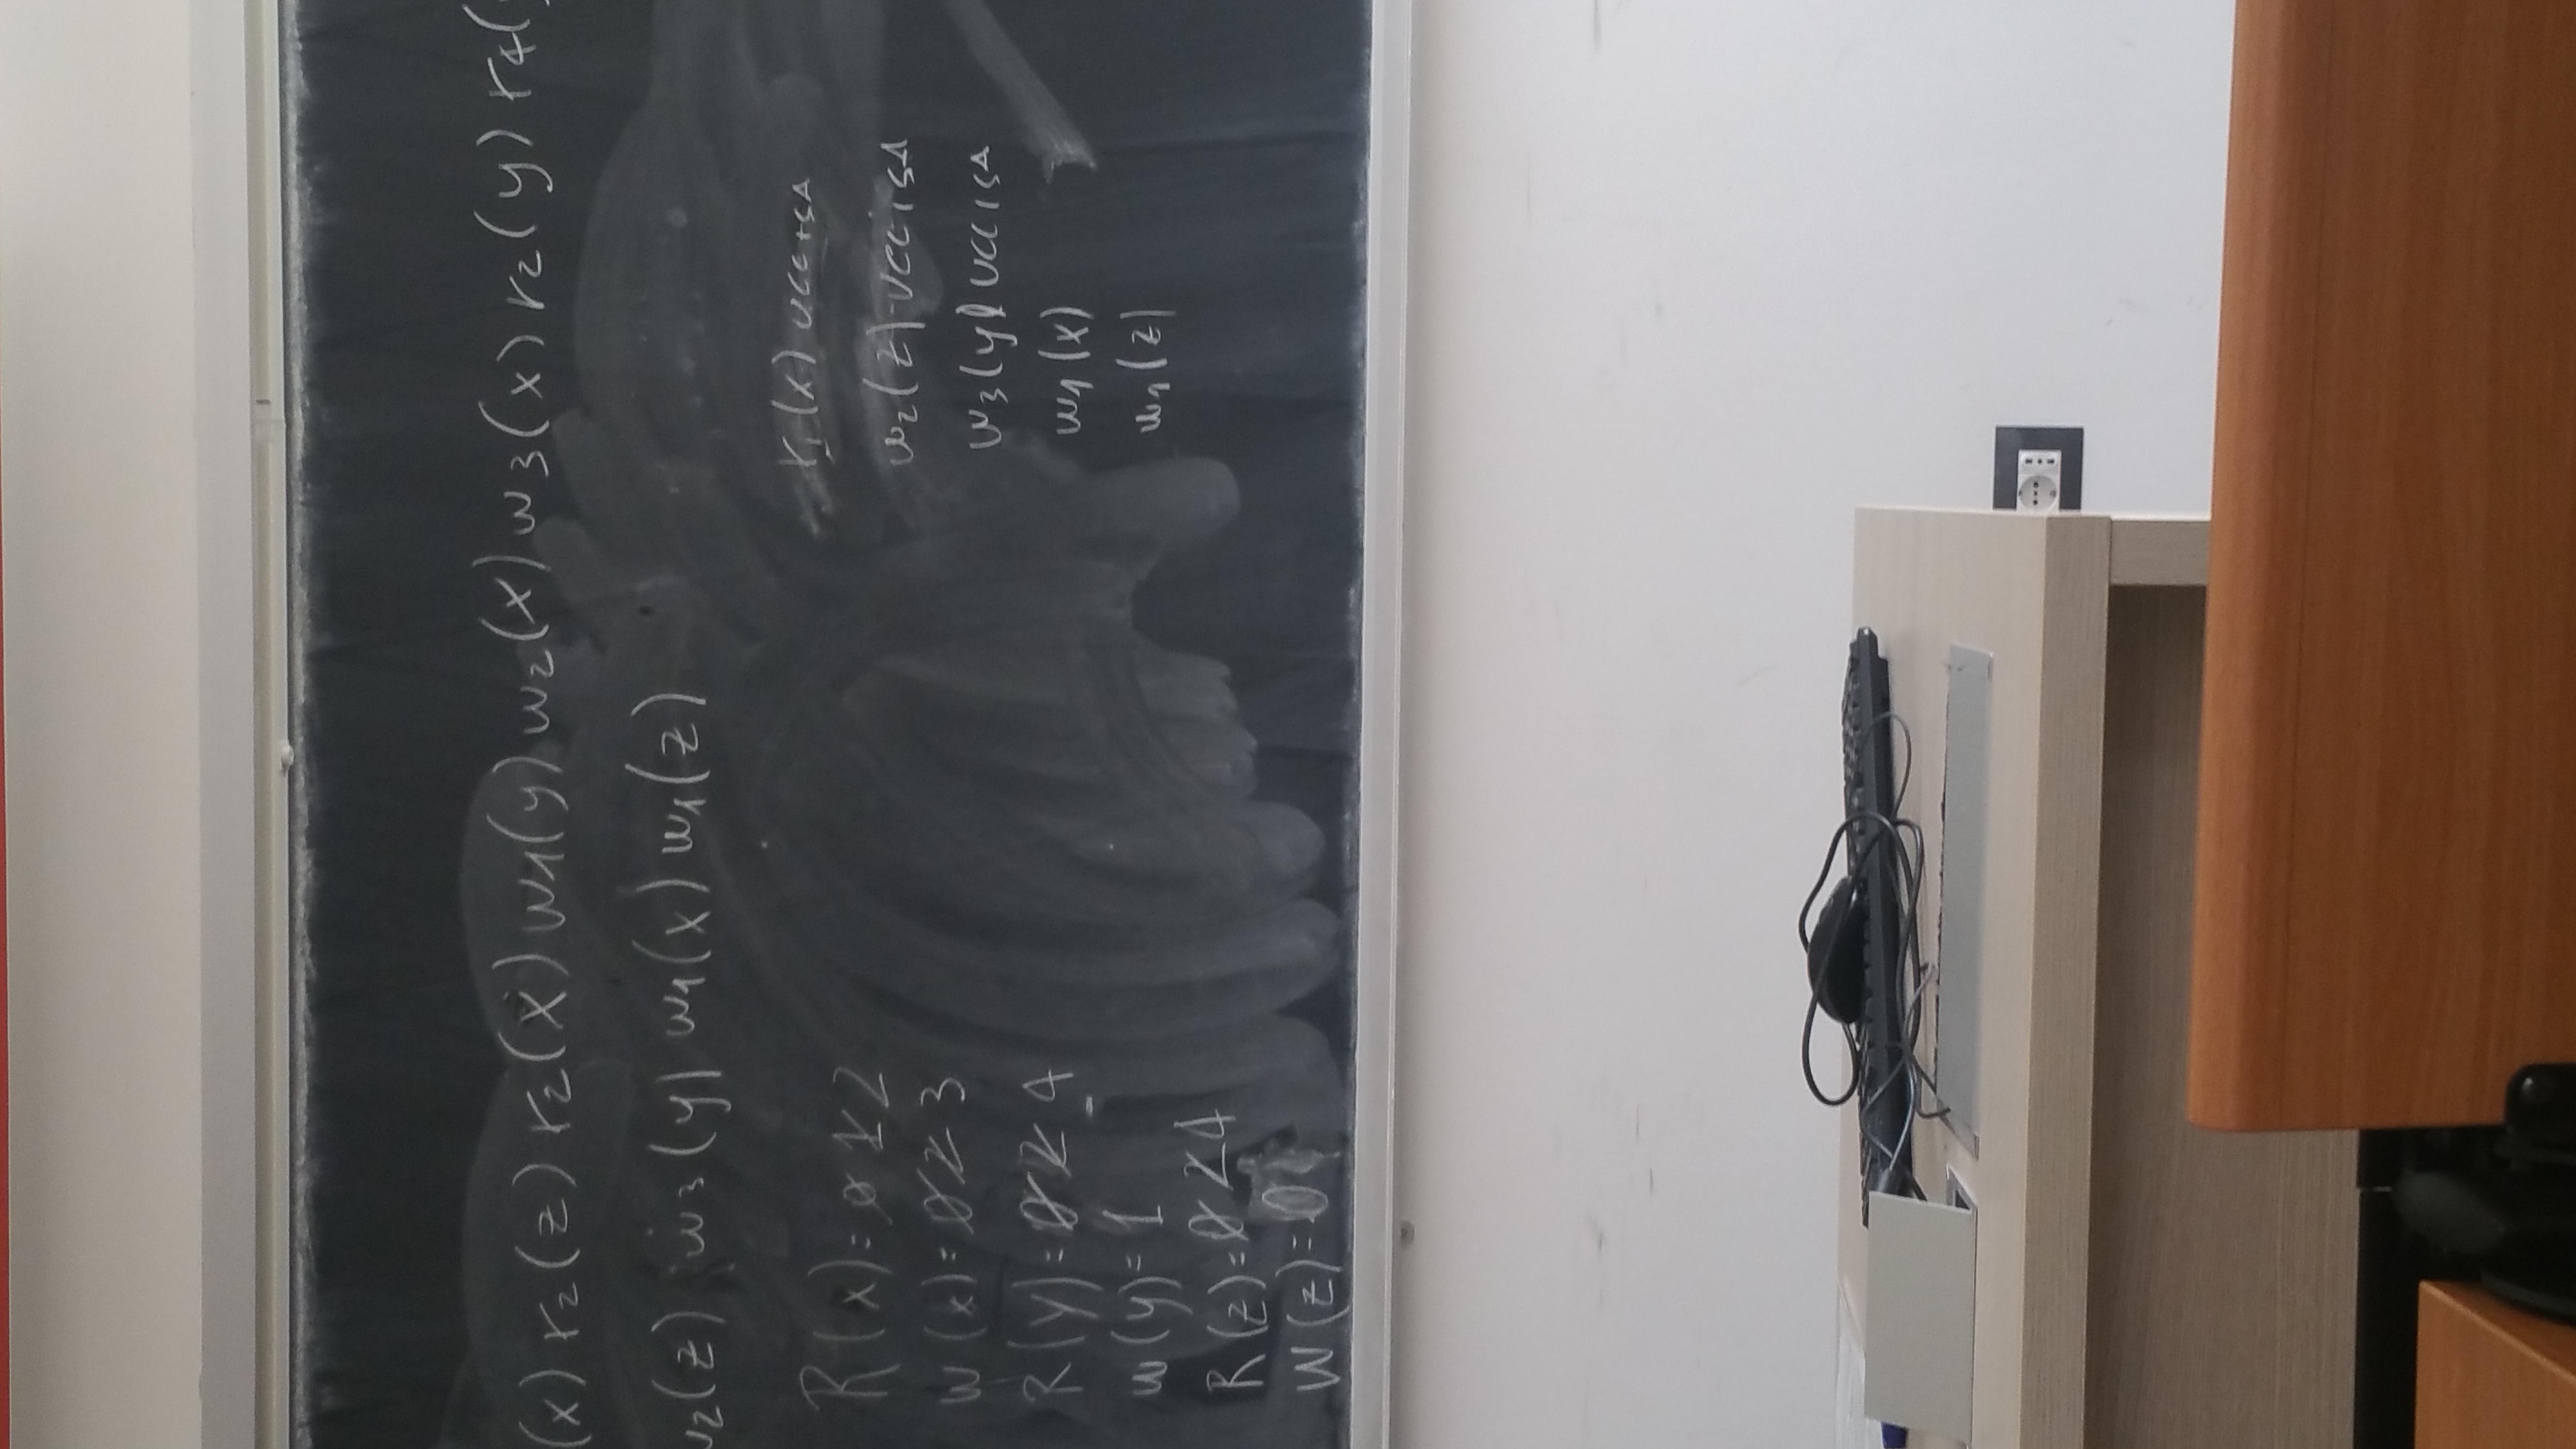 (x) r2(z) r2(x) w1(y) w2(x) w3(x) r2(y) r4(
w2(z) w3(y) w1(x) w1(z)
R(x)=0 1 2
W(x)=0 2 3
R(y)=0 2 4
W(y)=1
R(z)=0 2 4
W(z)=0
r1(x) uccisa
w2(z) uccisa
w3(y) uccisa
w1(x)
w1(z)